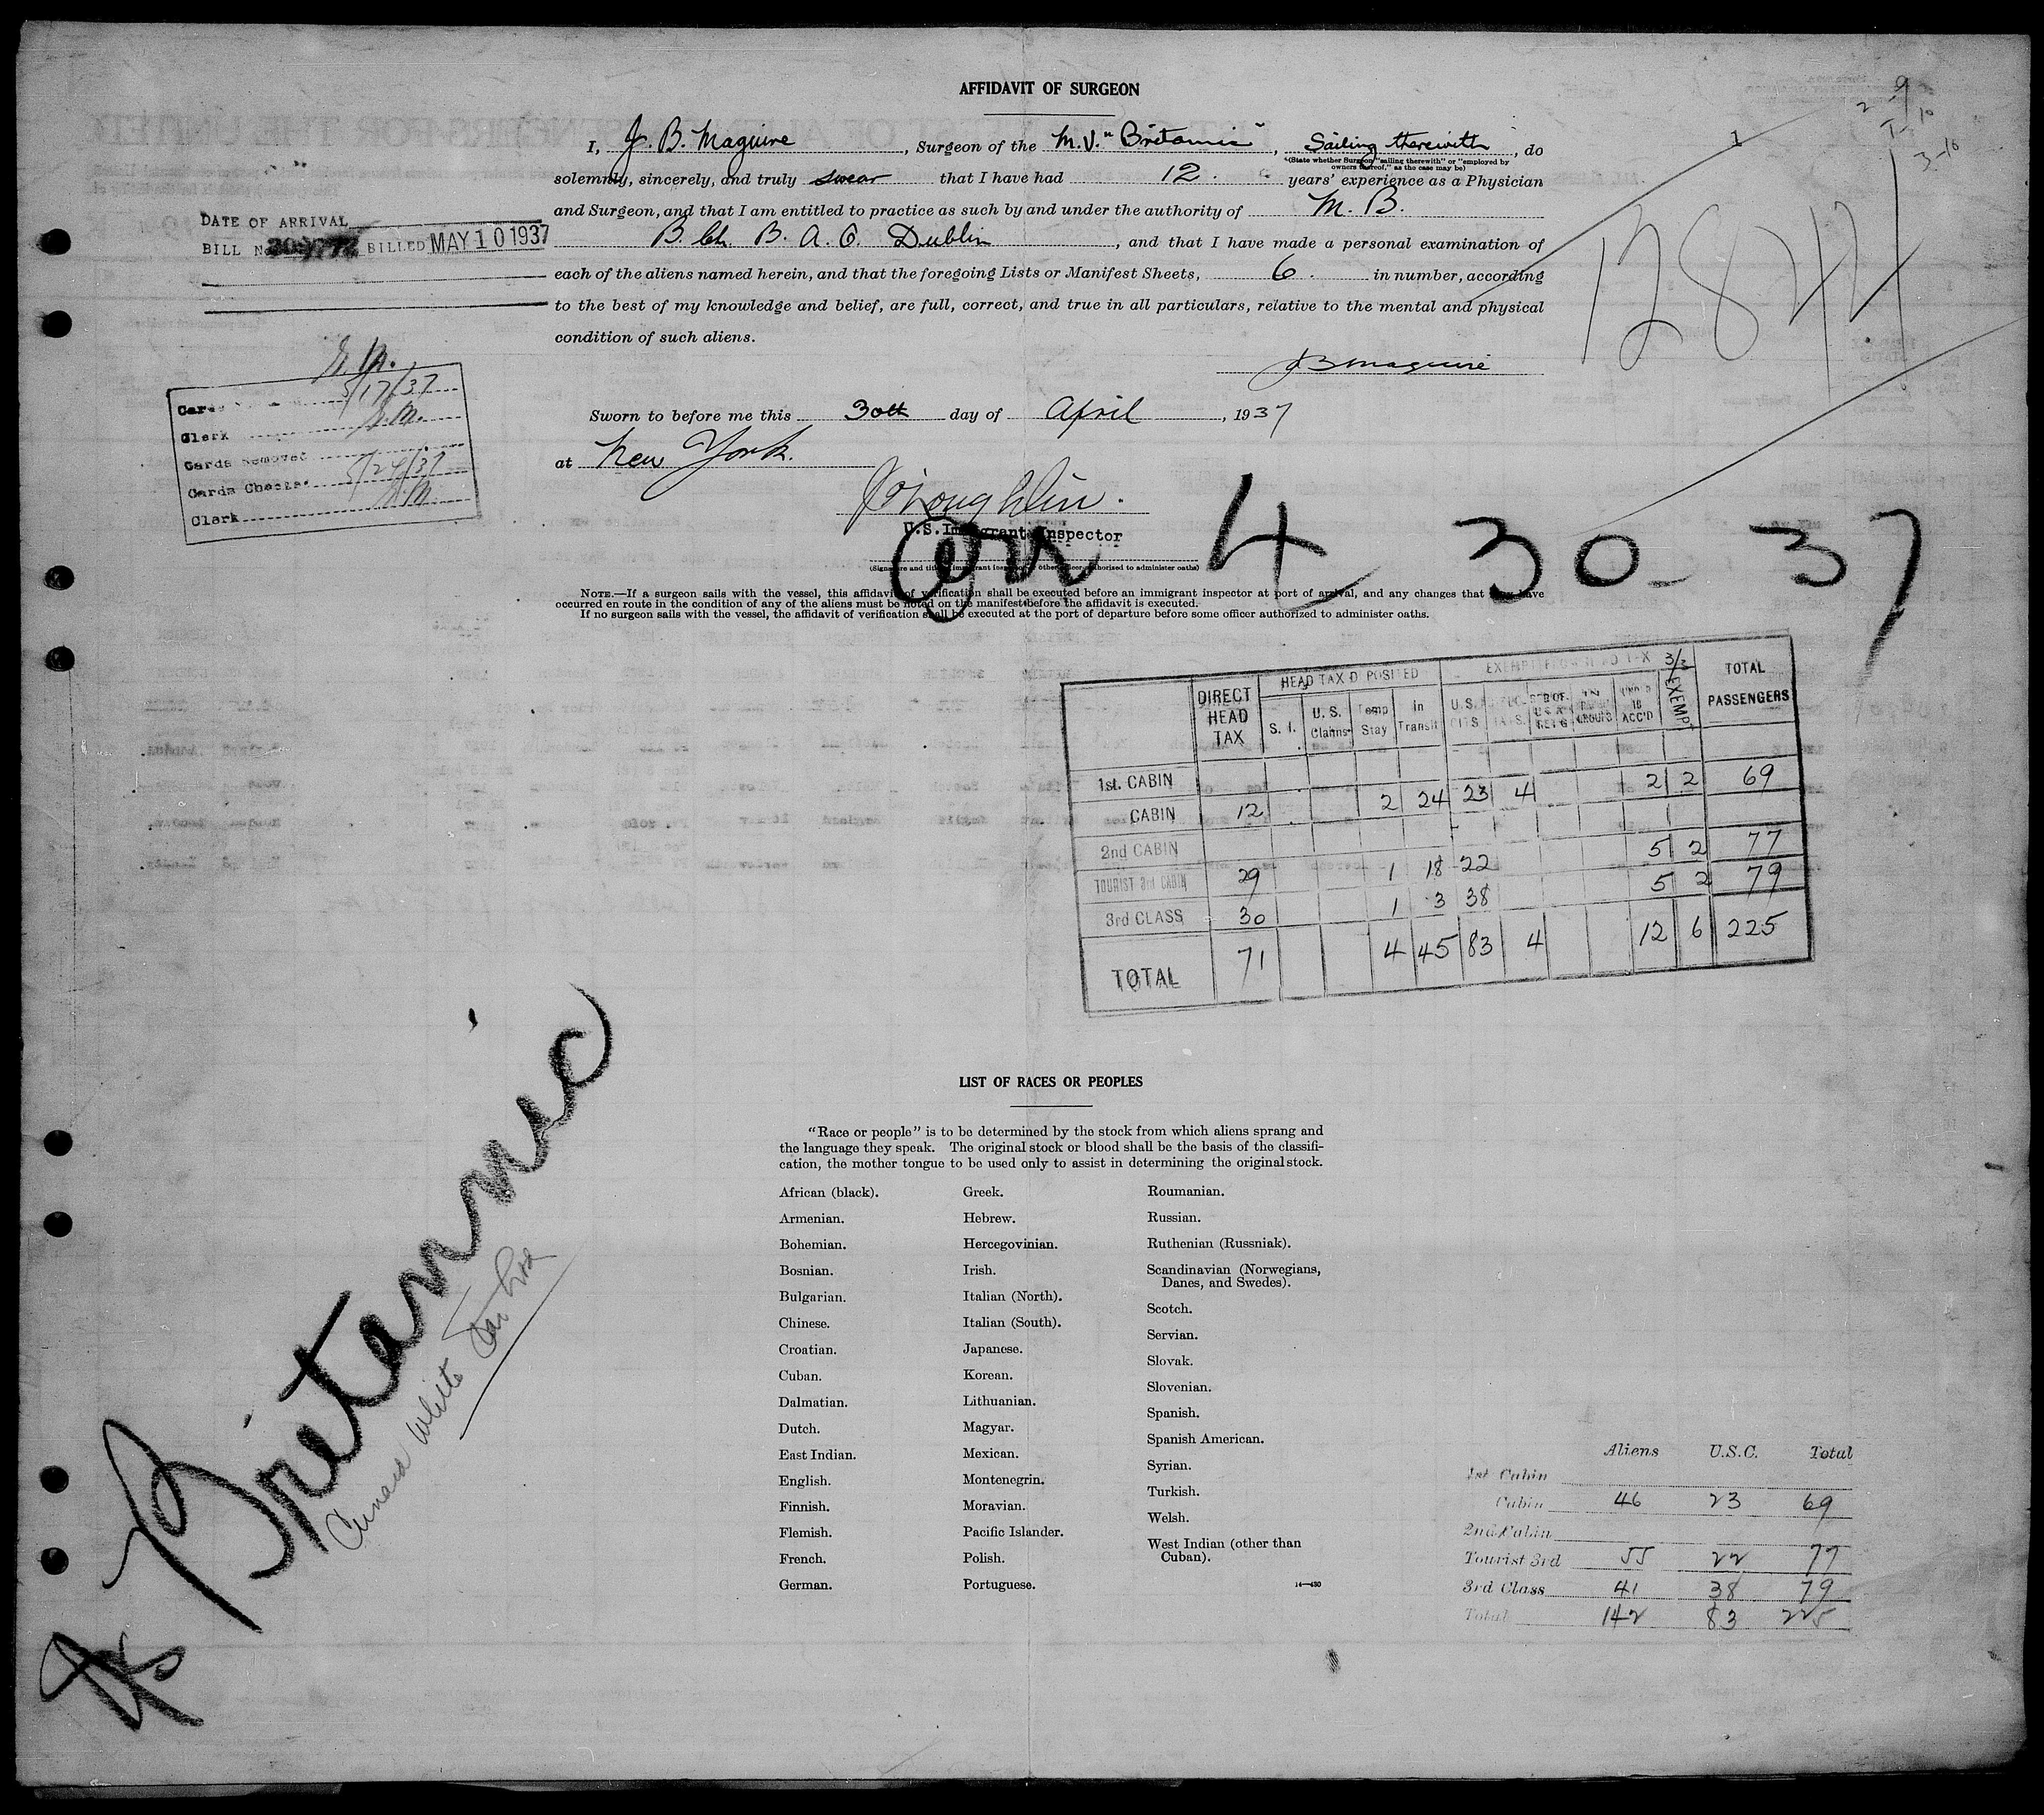 AFFIDAVIT OF SURGEON
I, J. B. Maguire, Surgeon of the M.V. "Britannic", Sailing therewith, do
*(State whether Surgeon "sailing therewith" or "employed by
owners thereof," as the case may be)
solemnly, sincerely, and truly swear that I have had 12. years' experience as a Physician
and Surgeon, and that I am entitled to practice as such by and under the authority of M. B.
B. Ch. B. A. O. Dublin, and that I have made a personal examination of
each of the aliens named herein, and that the foregoing Lists or Manifest Sheets, 6. in number, according
to the best of my knowledge and belief, are full, correct, and true in all particulars, relative to the mental and physical
condition of such aliens.
JB Maguire
Sworn to before me this 30th day of April, 1937
at New York.
U.S. Immigrant Inspector
(Signature and title of immigrant inspector or other officer authorized to administer oaths)
NOTE.—If a surgeon sails with the vessel, this affidavit of verification shall be executed before an immigrant inspector at port of arrival, and any changes that may have
occurred en route in the condition of any of the aliens must be noted on the manifest before the affidavit is executed.
If no surgeon sails with the vessel, the affidavit of verification shall be executed at the port of departure before some officer authorized to administer oaths.
DATE OF ARRIVAL
BILL No. BILLED MAY 10 1937
5/17/37
Clerk
Cards Removed
Cards Checked 5/24/37
Clerk
1
2-9
3-10
arr 4 30-37
DIRECT HEAD TAX HEAD TAX DEPOSITED EXEMPT FROM HEAD TAX TOTAL PASSENGERS
S. I. U. S. Claims Temp Stay In Transit U.S. CITS. EXEMPT
1st. CABIN
CABIN 12 2 24 23 4 2 2 69
2nd CABIN
TOURIST 3rd CABIN 29 1 18 22 5 2 77
3rd CLASS 30 1 3 38 5 2 79
TOTAL 71 4 45 83 4 12 6 225
LIST OF RACES OR PEOPLES
"Race or people" is to be determined by the stock from which aliens sprang and
the language they speak. The original stock or blood shall be the basis of the classifi-
cation, the mother tongue to be used only to assist in determining the original stock.
African (black).
Armenian.
Bohemian.
Bosnian.
Bulgarian.
Chinese.
Croatian.
Cuban.
Dalmatian.
Dutch.
East Indian.
English.
Finnish.
Flemish.
French.
German.
Greek.
Hebrew.
Hercegovinian.
Irish.
Italian (North).
Italian (South).
Japanese.
Korean.
Lithuanian.
Magyar.
Mexican.
Montenegrin.
Moravian.
Pacific Islander.
Polish.
Portuguese.
Roumanian.
Russian.
Ruthenian (Russniak).
Scandinavian (Norwegians,
Danes, and Swedes).
Scotch.
Servian.
Slovak.
Slovenian.
Spanish.
Spanish American.
Syrian.
Turkish.
Welsh.
West Indian (other than
Cuban).
14—430
Britannic
Cunard White Star Line
Aliens U.S.C. Total
1st Cabin
Cabin 46 23 69
2nd Cabin
Tourist 3rd 55 22 77
3rd Class 41 38 79
Total 142 83 225